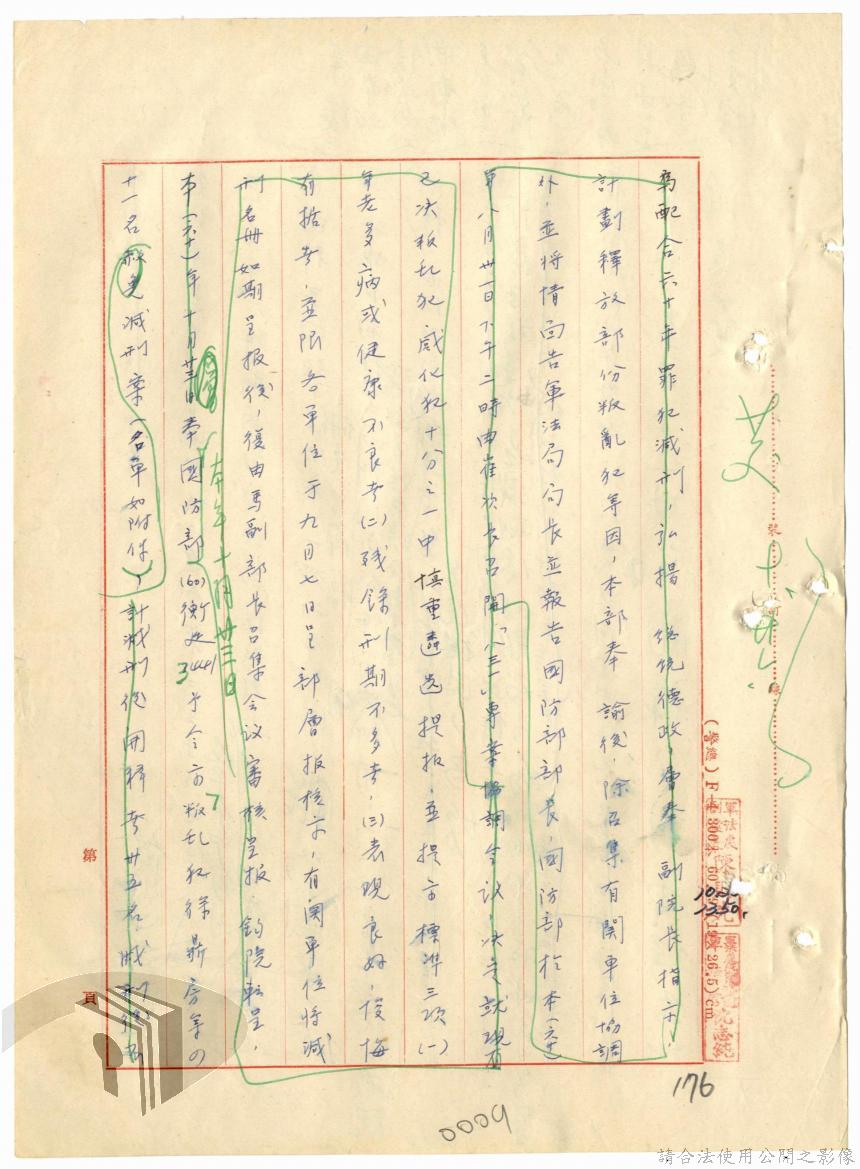 為配合六十年罪犯減刑，弘揚 總統德政，層奉 副院長指示，
計劃釋放部份叛亂犯等因，本部奉 諭後，除召集有関单位協調
外，並將情面告軍法局局長並報告國防部部長，國防部於本(六十)
年八月卅一日下午二時由崔次長召開「八三一」專案協調会议，決定就現有
已决叛乱犯感化犯十分之一中慎重遴选提报，並提示標準三項(一)
年老多病或健康不良者(二)残餘刑期不多者，(三)表現良好，悛悔
有据者，並限各单位于九月七日呈部層报核示，有関单位將減
刑名冊如期呈报後，復由馬副部長召集会议審核呈报 鈞院転呈，
本(六十)年十月廿三日奉國防部(60)
3441
予令示叛乱犯徐鼎
本年十月廿三日
十一名赦免減刑案(名单如附件)計減刑後開釋者廿五名減刑後
第 頁
裝
10.2
1350.
176
0009
請合法使用公開之影像